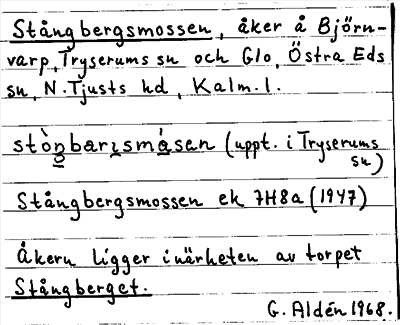 Stångbergsmossen, åker å Björn-
varp, Tryserums sn och Glo, Östra Eds
sn, N. Tjusts hd, Kalm. l.
stòn̥barɪsmásen (uppt. i Tryserums
sn)
Stångbergsmossen ek 7H8a (1947)
Åkern ligger i närheten av torpet
Stångberget.
G. Aldén 1968.